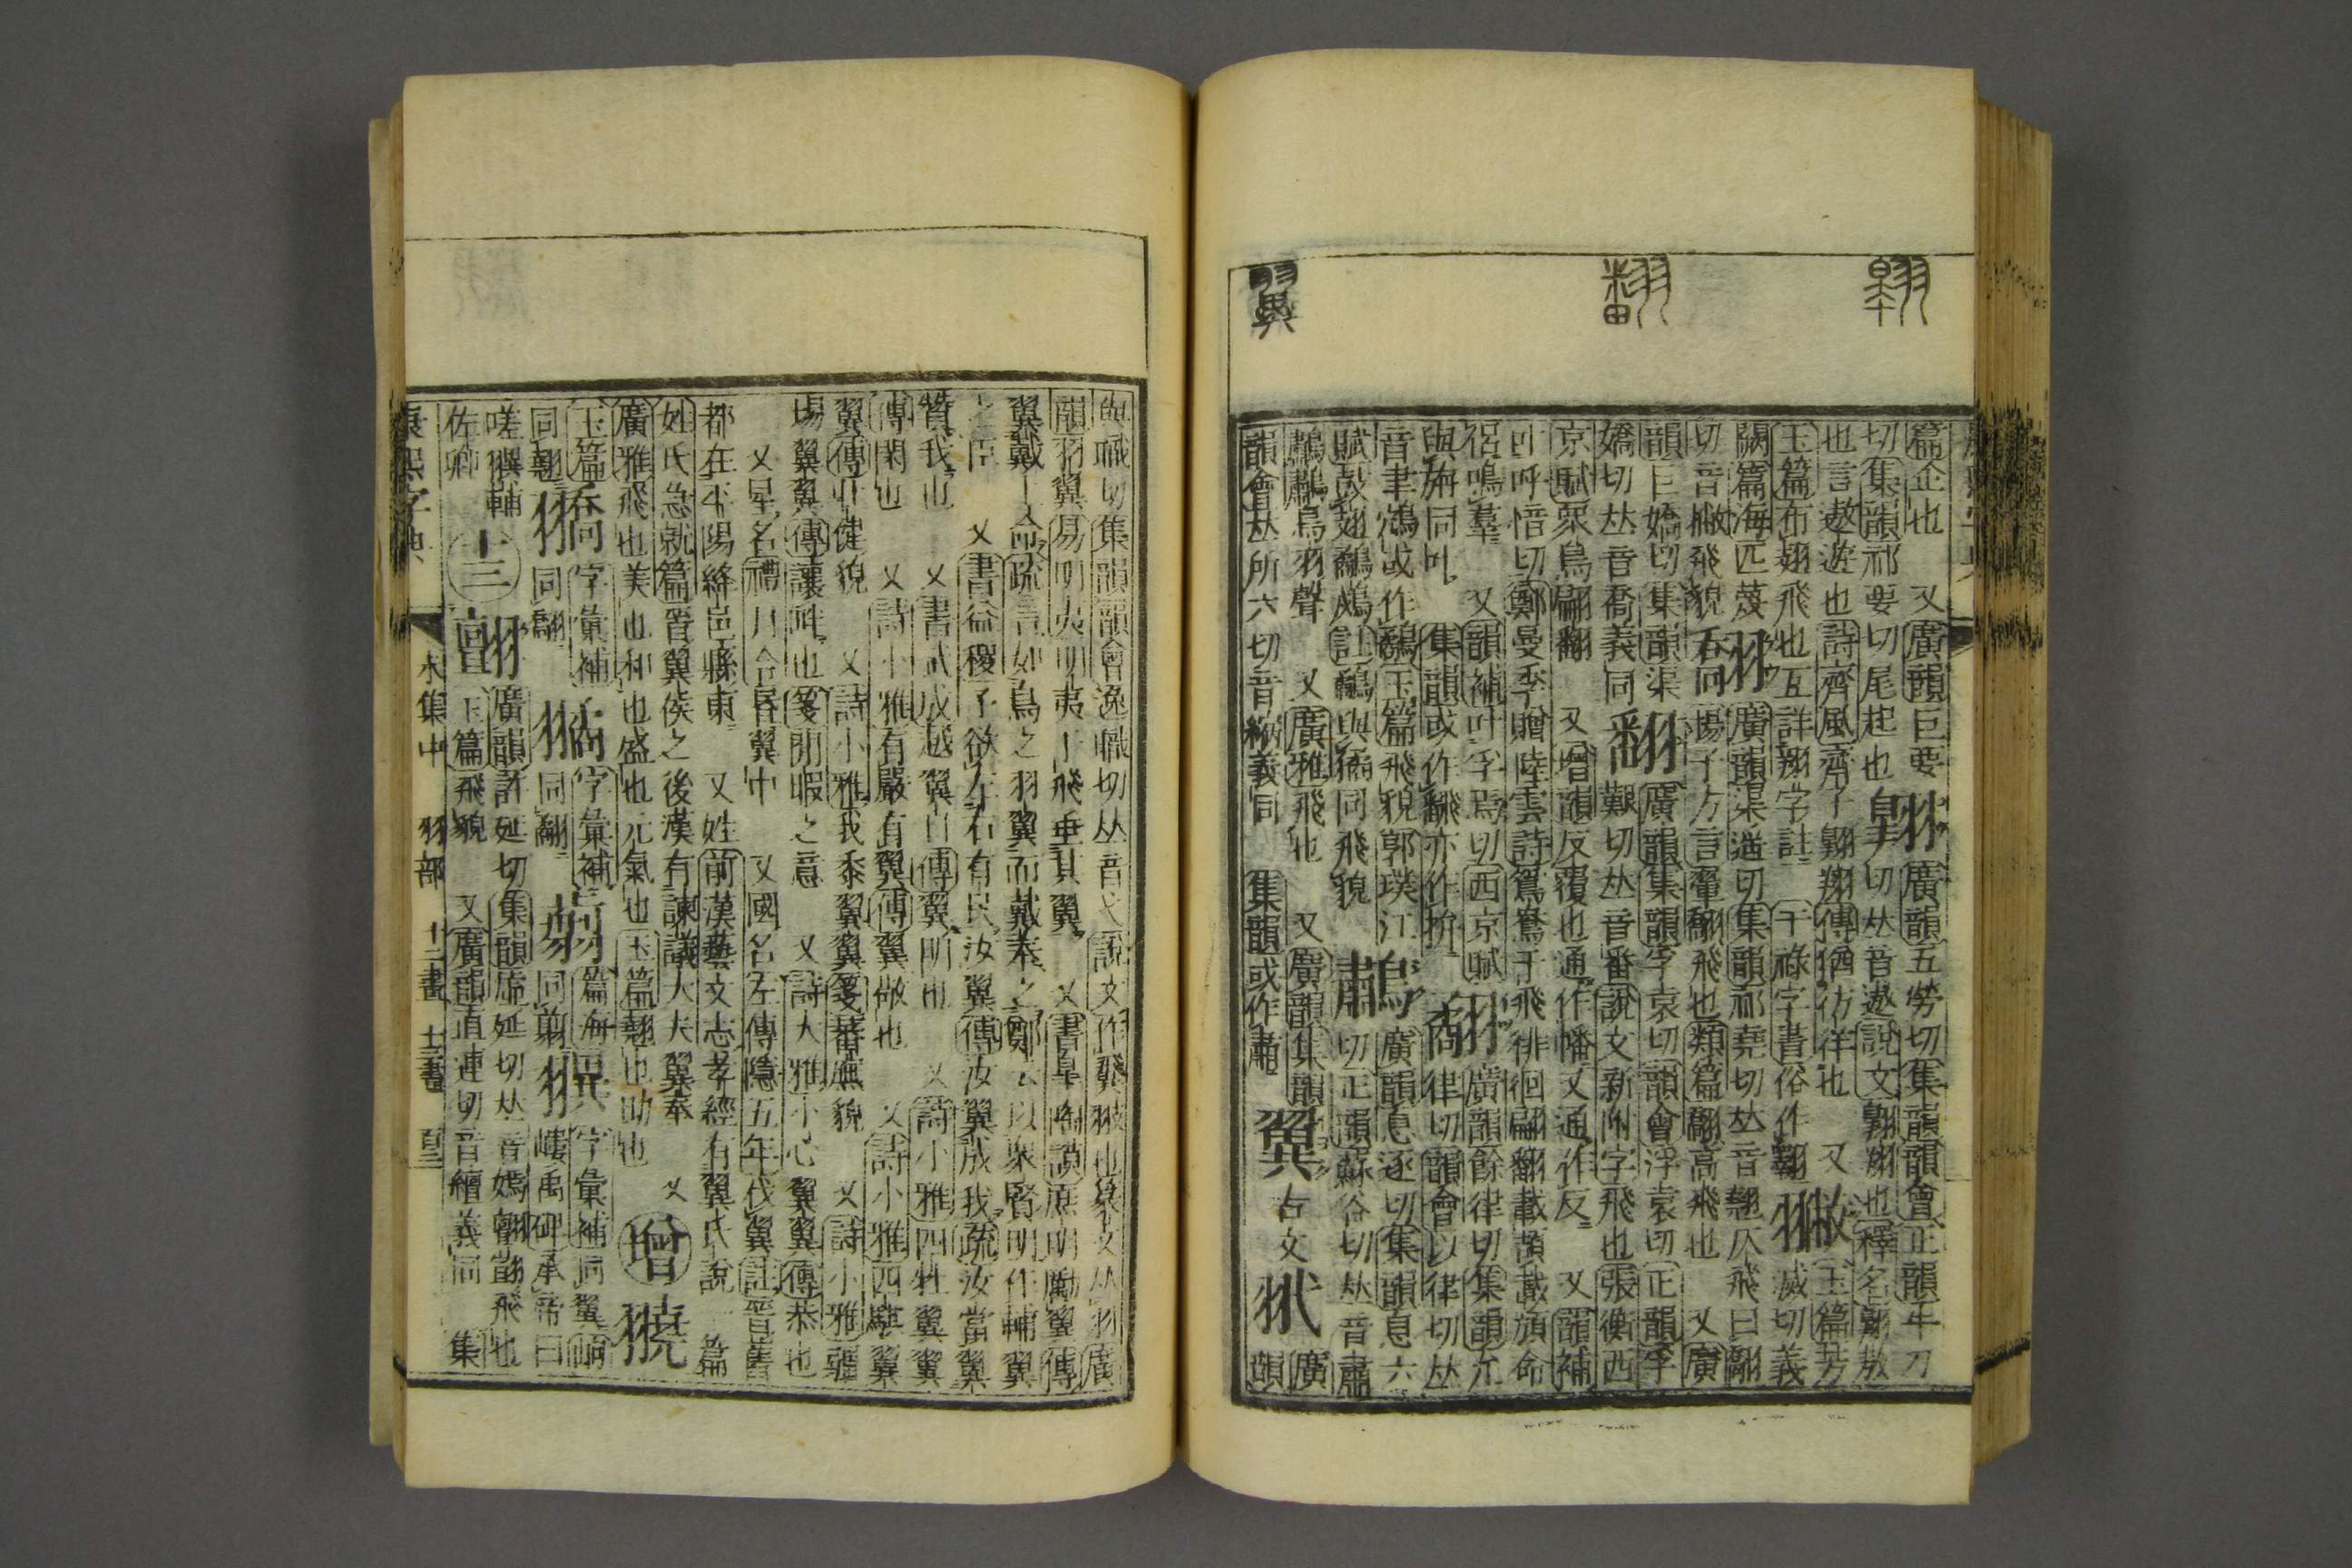 翱
翻
翼
篇企也 又廣韻巨要
切集韻祁要切尾起也
翱 廣韻五勞切集韻韻會正韻牛刀
切𠀤音遨說文翱翔也釋名翱敖
也言遨遊也詩齊風齊子翱翔傳猶彷徉也 又
玉篇布翅飛也互詳翔字註 干祿字書俗作翱
玉篇芳
滅切義
闕篇海匹蔑
切音撇飛貌
翹 廣韻渠遙切集韻祁堯切𠀤音翹仄飛曰翹
揚子方言翬翻飛也類篇翹高飛也 又廣
韻巨嬌切集韻渠
嬌切𠀤音喬義同
翻 廣韻集韻孚袁切韻會浮袁切正韻孚
艱切𠀤音番說文新附字飛也張衡西
京賦眾鳥翩翻 又增韻反覆也通作幡又通作反 又韻補
叶呼愔切鄭曼季贈陸雲詩鴛鴦于飛徘徊翩翻載頡載頏命
侶鳴羣 又韻補叶孚焉切西京賦
與㧓同叶 集韻或作飜亦作拚
翻 廣韻餘律切集韻允
律切韻會以律切𠀤
音聿鴻或作鷸玉篇飛貌郭璞江
賦鼓翅翻𦒢註翻與獝同飛貌
鷫 廣韻息逐切集韻息六
切正韻蘇谷切𠀤音肅
鷫鷫鳥羽聲 又廣雅飛也 又廣韻集韻
韻會𠀤所六切音縮義同 集韻或作肅
翼 古文
廣
韻
與職切集韻韻會逸職切𠀤音弋說文作䬇翄也篆文从羽廣
韻羽翼易明夷明夷于飛垂其翼 又書臯陶謨庶明勵翼傳
翼戴上命疏言如鳥之羽翼而戴奉之鄭云以眾賢明作輔翼
之臣 又書益稷予欲左右有民汝翼傳汝翼成我疏汝當翼
贊我也 又書武成越翼日傳翼明也 又詩小雅四牡翼翼
傳閑也 又詩小雅有嚴有翼傳翼敬也 又詩小雅四騏翼
翼傳壯健貌 又詩小雅我黍翼翼箋蕃廡貌 又詩小雅疆
埸翼翼傳讓畔也箋閒暇之意 又詩大雅小心翼翼傳恭也
又星名禮月令昏翼中 又國名左傳隱五年伐翼註晉舊
都在平陽絳邑縣東 又姓前漢藝文志孝經有翼氏說 篇
姓氏急就篇晉翼侯之後漢有諫議大夫翼奉 又
廣雅飛也美也和也盛也元氣也玉篇翹也助也
增
玉篇
同翹
字彙補
同翻
字彙補
同翻
篇海
同翦
字彙補同翼岣
嶁禹碑承帝曰
嗟翼輔
佐卿
十三
翾 廣韻許延切集韻虛延切𠀤音嫣翾翥飛也
玉篇飛貌 又廣韻直連切音纏義同 集
康熙字典 未集中 羽部 十二畫 十三畫 百三